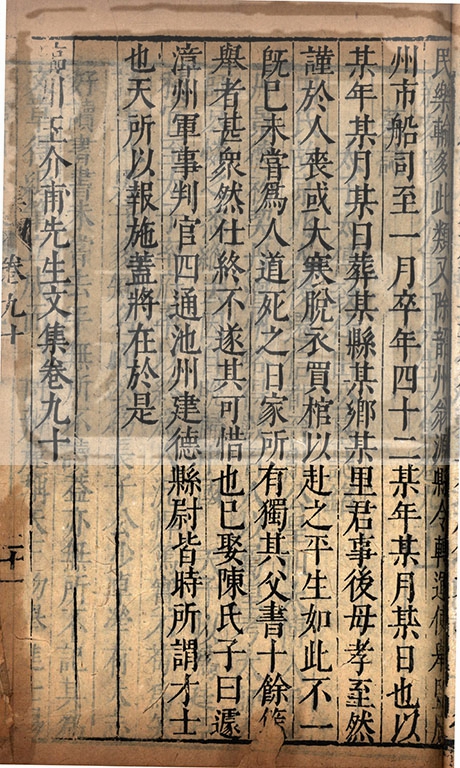 民樂輸多此類又除韶州翁源縣令轉運使
州市船司至一月卒年四十二某年某月某日也以
某年某月某日葬某縣某鄉某里君事後母孝至然
謹於人喪或大寒脫衣買棺以赴之平生如此不一
既已未嘗爲人道死之日家所有獨其父書十餘
舉者甚衆然仕終不遂其可惜也已娶陳氏子曰遽
漳州軍事判官四通池州建德縣尉皆時所謂才士
也天所以報施蓋將在於是
臨川王介甫先生文集卷九十
卷九十